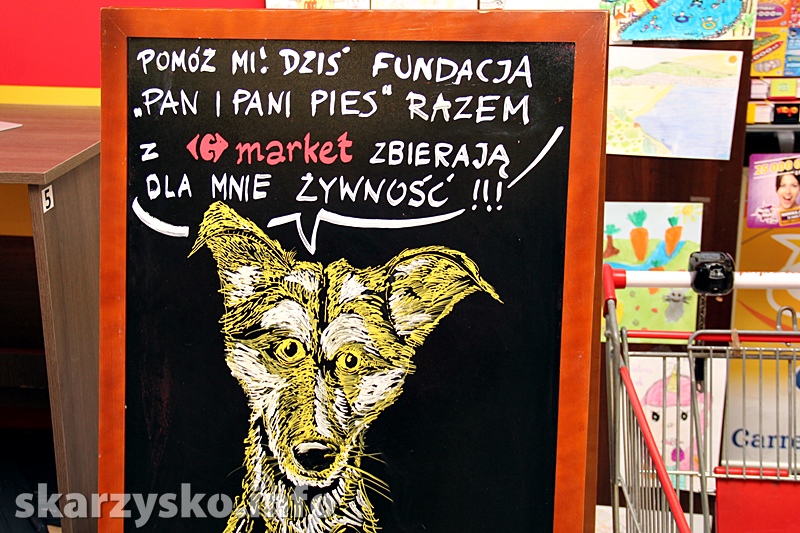 POMÓŻ MI! DZIŚ FUNDACJA
„PAN I PANI PIES" RAZEM
Z market ZBIERAJĄ
DLA MNIE ŻYWNOŚĆ !!!
5
25 000
Carre
skarzysko.info